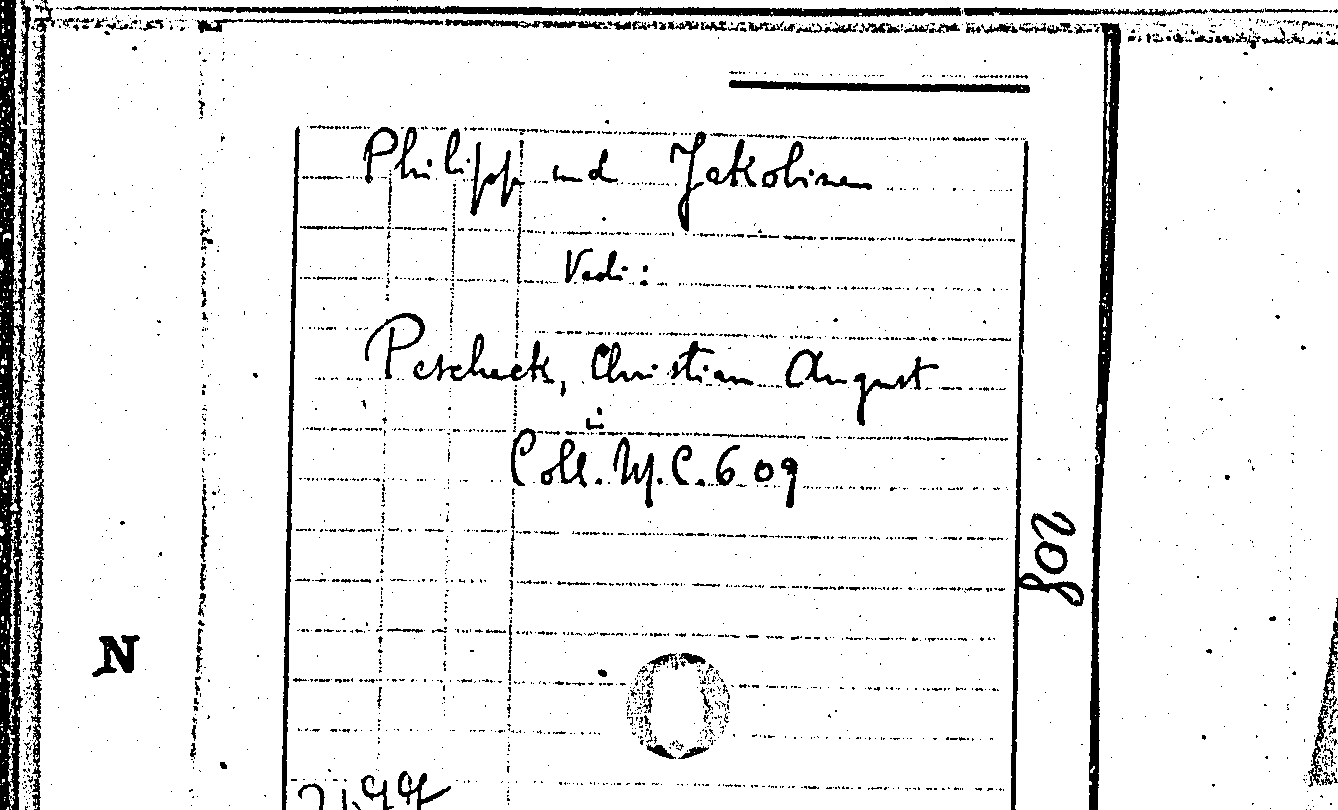 Philipp und Jakobinen
Vedi:
Pescheck, Christian August
in
Coll. M. C. 6 09
802
N